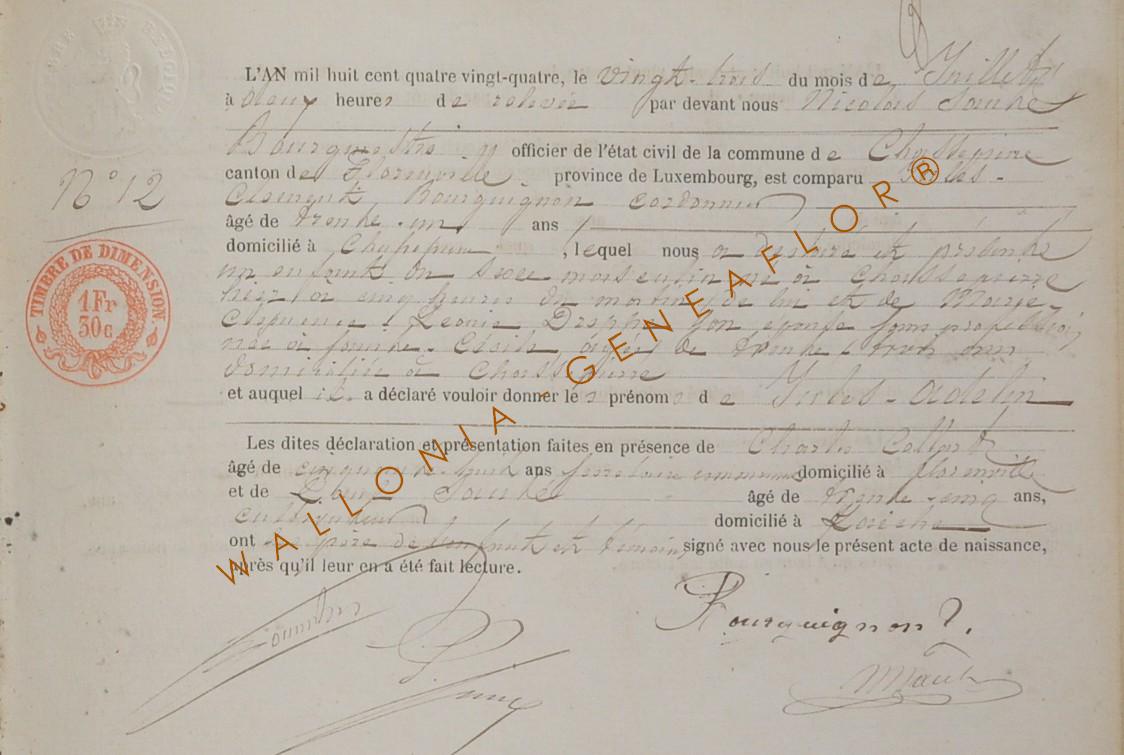 L'AN mil huit cent quatre vingt-quatre, le vingt-trois du mois de Juillet
à deux heures de relevée par devant nous Nicolas
Bourgmestre officier de l'état civil de la commune de Chassepierre
canton de Florenville province de Luxembourg, est comparu Jules-
N° 12
Clément Bourguignon cordonnier
âgé de trente-un ans
domicilié à Chassepierre, lequel nous a déclaré et présenté
un enfant du sexe masculin né à Chassepierre
hier à cinq heures du matin, de lui et de Marie-
Léonie son épouse sans profession
née à Sainte-Cécile, âgée de trente trois ans
domiciliée à Chassepierre
et auquel il a déclaré vouloir donner les prénoms de Jules-Adelin
TIMBRE DE DIMENSION
1 Fr
30c
Les dites déclaration et présentation faites en présence de Charles Collard
âgé de cinquante-huit ans secrétaire communal domicilié à Florenville
et de Louis âgé de trente-cinq ans,
cultivateur domicilié à
ont le père de l'enfant et témoins signé avec nous le présent acte de naissance,
après qu'il leur en a été fait lecture.
Bourguignon J.
WALLONIA-GENEAFLOR®